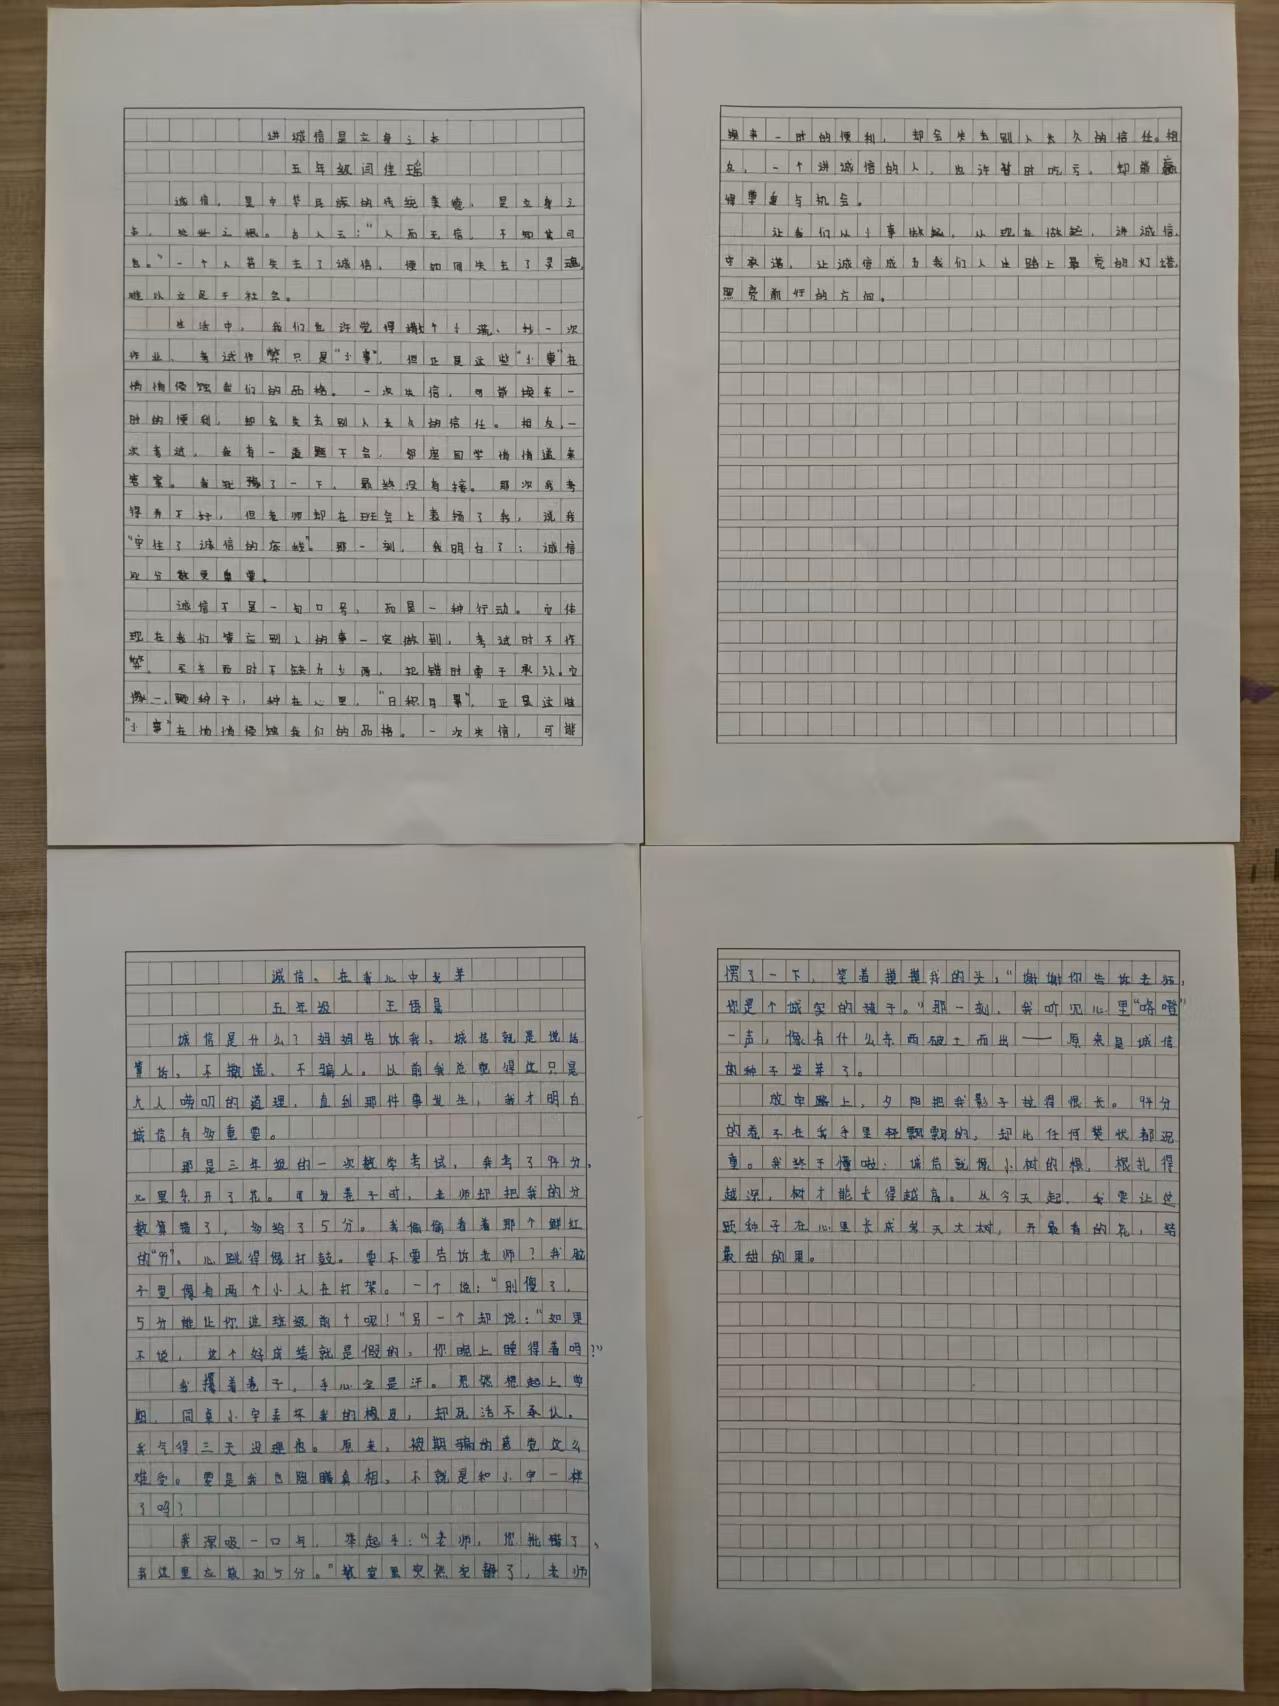 讲诚信是立身之本
五年级闫佳瑶
诚信，是中华民族的传统美德，是立身之
本，处世之根。古人云："人而无信，不知其可
也。"一个人若失去了诚信，便如同失去了灵魂，
难以立足于社会。
生活中，我们也许觉得撒个小谎、抄一次
作业、考试作弊只是"小事"，但正是这些"小事"在
悄悄侵蚀我们的品格。一次失信，可能换来一
时的便利，却会失去别人长久的信任。相反，一
次考试，我有一道题不会，邻座同学悄悄递来
答案。我犹豫了一下，最终没有接。那次我考
得并不好，但老师却在班会上表扬了我，说我
"守住了诚信的底线"。那一刻，我明白了：诚信
比分数更重要。
诚信不是一句口号，而是一种行动。它体
现在我们答应别人的事一定做到，考试时不作
弊，买东西时不缺斤少两，犯错时勇于承认。它
像一颗种子，种在心里，"日积月累"，正是这些
"小事"在悄悄侵蚀我们的品格。一次失信，可能
换来一时的便利，却会失去别人长久的信任。相
反，一个讲诚信的人，也许暂时吃亏，却能赢
得尊重与机会。
让我们从小事做起，从现在做起，讲诚信，
守承诺，让诚信成为我们人生路上最亮的灯塔，
照亮前行的方向。
诚信，在我心中发芽
五年级 王语晨
诚信是什么？妈妈告诉我，诚信就是说话
算话，不撒谎、不骗人。以前我总觉得这只是
大人唠叨的道理，直到那件事发生，我才明白
诚信有多重要。
那是三年级的一次数学考试，我考了94分，
心里乐开了花。可发卷子时，老师却把我的分
数算错了，多给了5分。我偷偷看着那个鲜红
的"99"，心跳得像打鼓。要不要告诉老师？我脑
子里像有两个小人在打架。一个说："别傻了，
5分能让你进班级前十呢！"另一个却说："如果
不说，这个好成绩就是假的，你晚上睡得着吗？"
我攥着卷子，手心全是汗。忽然想起上学
期，同桌小宇弄坏我的橡皮，却死活不承认，
我气得三天没理他。原来，被欺骗的感觉这么
难受。要是我也隐瞒真相，不就是和小宇一样
了吗？
我深吸一口气，举起手："老师，您批错了，
我这里应该扣5分。"教室里突然安静了，老师
愣了一下，笑着摸摸我的头："谢谢你告诉老师，
你是个诚实的孩子。"那一刻，我听见心里"咯噔"
一声，像有什么东西破土而出——原来是诚信
的种子发芽了。
放学路上，夕阳把我影子拉得很长。94分
的卷子在我手里轻飘飘的，却比任何奖状都沉
重。我终于懂啦：诚信就像小树的根，根扎得
越深，树才能长得越高。从今天起，我要让这
颗种子在心里长成参天大树，开最香的花，结
最甜的果。